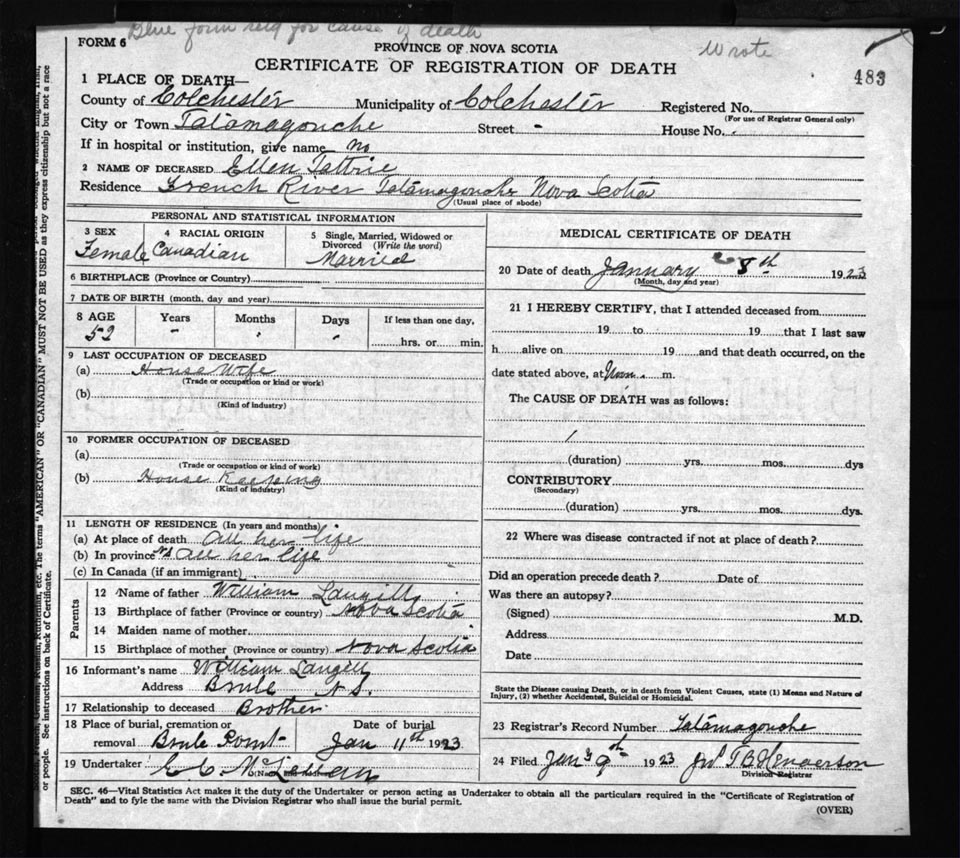 Blue form req for cause of death
Wrote
FORM 6
PROVINCE OF NOVA SCOTIA
CERTIFICATE OF REGISTRATION OF DEATH
483
1 PLACE OF DEATH—
County of Colchester Municipality of Colchester Registered No.
(For use of Registrar General only)
City or Town Tatamagouche Street - House No.
If in hospital or institution, give name no
2 NAME OF DECEASED Ellen Tattrie
Residence French River Tatamagouche Nova Scotia
(Usual place of abode)
PERSONAL AND STATISTICAL INFORMATION
3 SEX 4 RACIAL ORIGIN 5 Single, Married, Widowed or Divorced (Write the word)
Female Canadian Married
6 BIRTHPLACE (Province or Country)
7 DATE OF BIRTH (month, day and year)
8 AGE Years Months Days If less than one day,
52 - hrs. or min.
9 LAST OCCUPATION OF DECEASED
(a) House Wife
(Trade or occupation or kind or work)
(b)
(Kind of industry)
10 FORMER OCCUPATION OF DECEASED
(a)
(Trade or occupation or kind of work)
(b) House Keeping
(Kind of industry)
11 LENGTH OF RESIDENCE (In years and months)
(a) At place of death all her life
(b) In province NS all her life
(c) In Canada (if an immigrant)
Parents
12 Name of father William Langill
13 Birthplace of father (Province or country) Nova Scotia
14 Maiden name of mother
15 Birthplace of mother (Province or country) Nova Scotia
16 Informant's name William Langell
Address Brule N S.
17 Relationship to deceased Brother
18 Place of burial, cremation or Date of burial
removal Brule Point Jan 11th 1923
19 Undertaker
MEDICAL CERTIFICATE OF DEATH
20 Date of death January 8th 1923
(Month, day and year)
21 I HEREBY CERTIFY, that I attended deceased from
19 to 19 that I last saw
h alive on 19 and that death occurred, on the
date stated above, at m.
The CAUSE OF DEATH was as follows:
(duration) yrs. mos. dys
CONTRIBUTORY
(Secondary)
(duration) yrs. mos. dys.
22 Where was disease contracted if not at place of death?
Did an operation precede death? Date of
Was there an autopsy?
(Signed) M.D.
Address
Date
State the Disease causing Death, or in death from Violent Causes, state (1) Means and Nature of
Injury, (2) whether Accidental, Suicidal or Homicidal.
23 Registrar's Record Number Tatamagouche
24 Filed Jany 9th 1923 Henderson
Division Registrar
SEC. 46—Vital Statistics Act makes it the duty of the Undertaker or person acting as Undertaker to obtain all the particulars required in the "Certificate of Registration of
Death" and to fyle the same with the Division Registrar who shall issue the burial permit.
(OVER)
The terms "AMERICAN" OR "CANADIAN" MUST NOT BE USED as they express citizenship but not a race
or people. See instructions on back of Certificate.